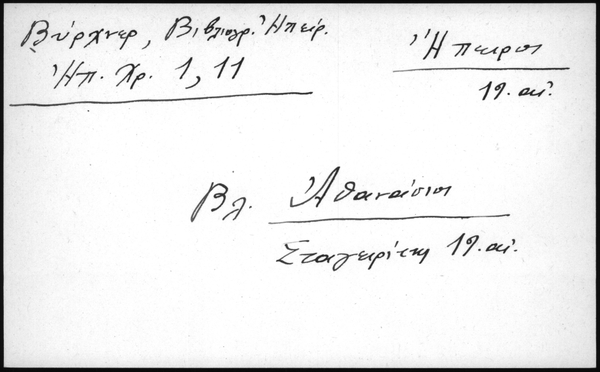 Βύρχνερ, Βιβλιογρ. Ἠπείρ.
Ἠπ. Χρ. 1, 11
Ἤπειρος
19. αἰ.
Βλ. Ἀθανάσιος
Σταγειρίτης 19. αἰ.